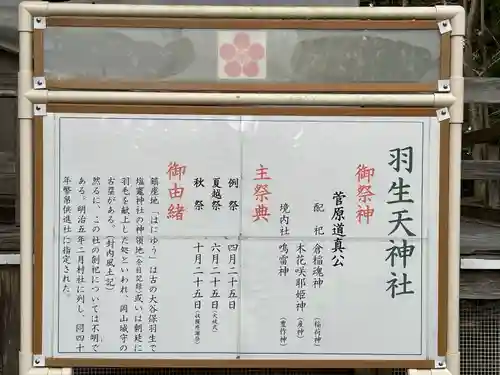 羽生天神社
御祭神
菅原道真公
配祀 倉稲魂神（稲荷神）
木花咲耶姫神（産神）
境内社 鳴雷神（豊作神）
主祭典
例祭 四月二十五日
夏越祭 六月二十五日（大祓式）
秋祭 十月二十五日
御由緒
鎮座地「はにゅう」は古の大谷保羽生で
塩竈神社の神領地（余目記録）或いは劍廷に
羽毛を献上した処といわれ、岡山城守の
古塁がある。（封内風土記）
然るに、この社の創祀については不明で
ある。明治五年二月村社に列し、同四十
年幣帛供進社に指定された。